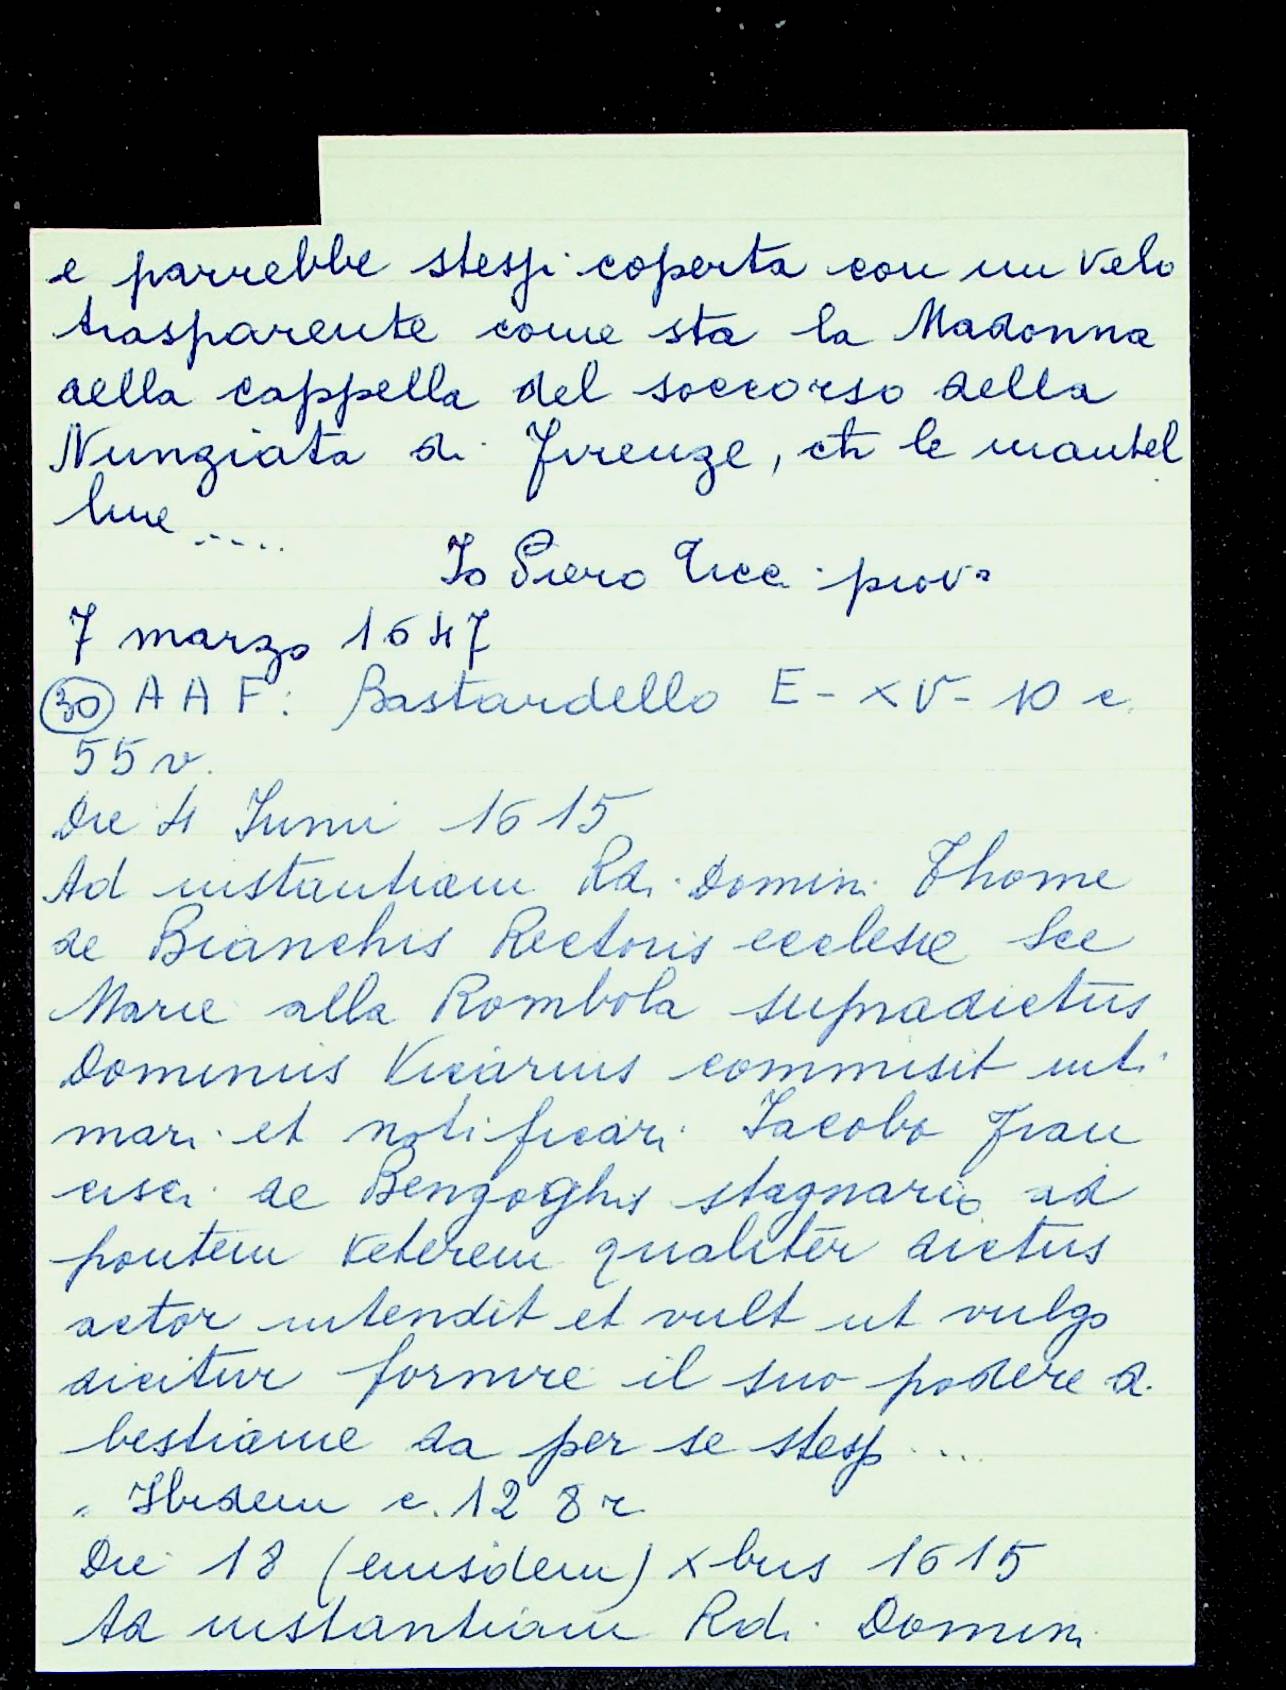 e parrebbe stessi coperta con un velo
trasparente come sta la Madonna
della cappella del soccorso della
Nunziata di Firenze, che le mantel
line.....
Io Piero Ucci prov.
7 marzo 1647
(30) A A F: Bastardello E - XV - 10 c.
55 v.
Die 4 Iunii 1615
Ad instantiam Rdi. Domini Thome
de Bianchis Rectoris ecclesie Sce
Marie alla Rombola supradictus
Dominus Vicarius commisit inti
mari et notificari Iacobo Fran
cisci de Bengoghis stagnario ad
pontem Veterem qualiter dictus
actor intendit et vult ut vulgo
dicitur fornire il suo podere di
bestiame da per se stesso ...
Ibidem c. 128 r
Die 18 (eiusdem) xbris 1615
Ad instantiam Rdi. Domini